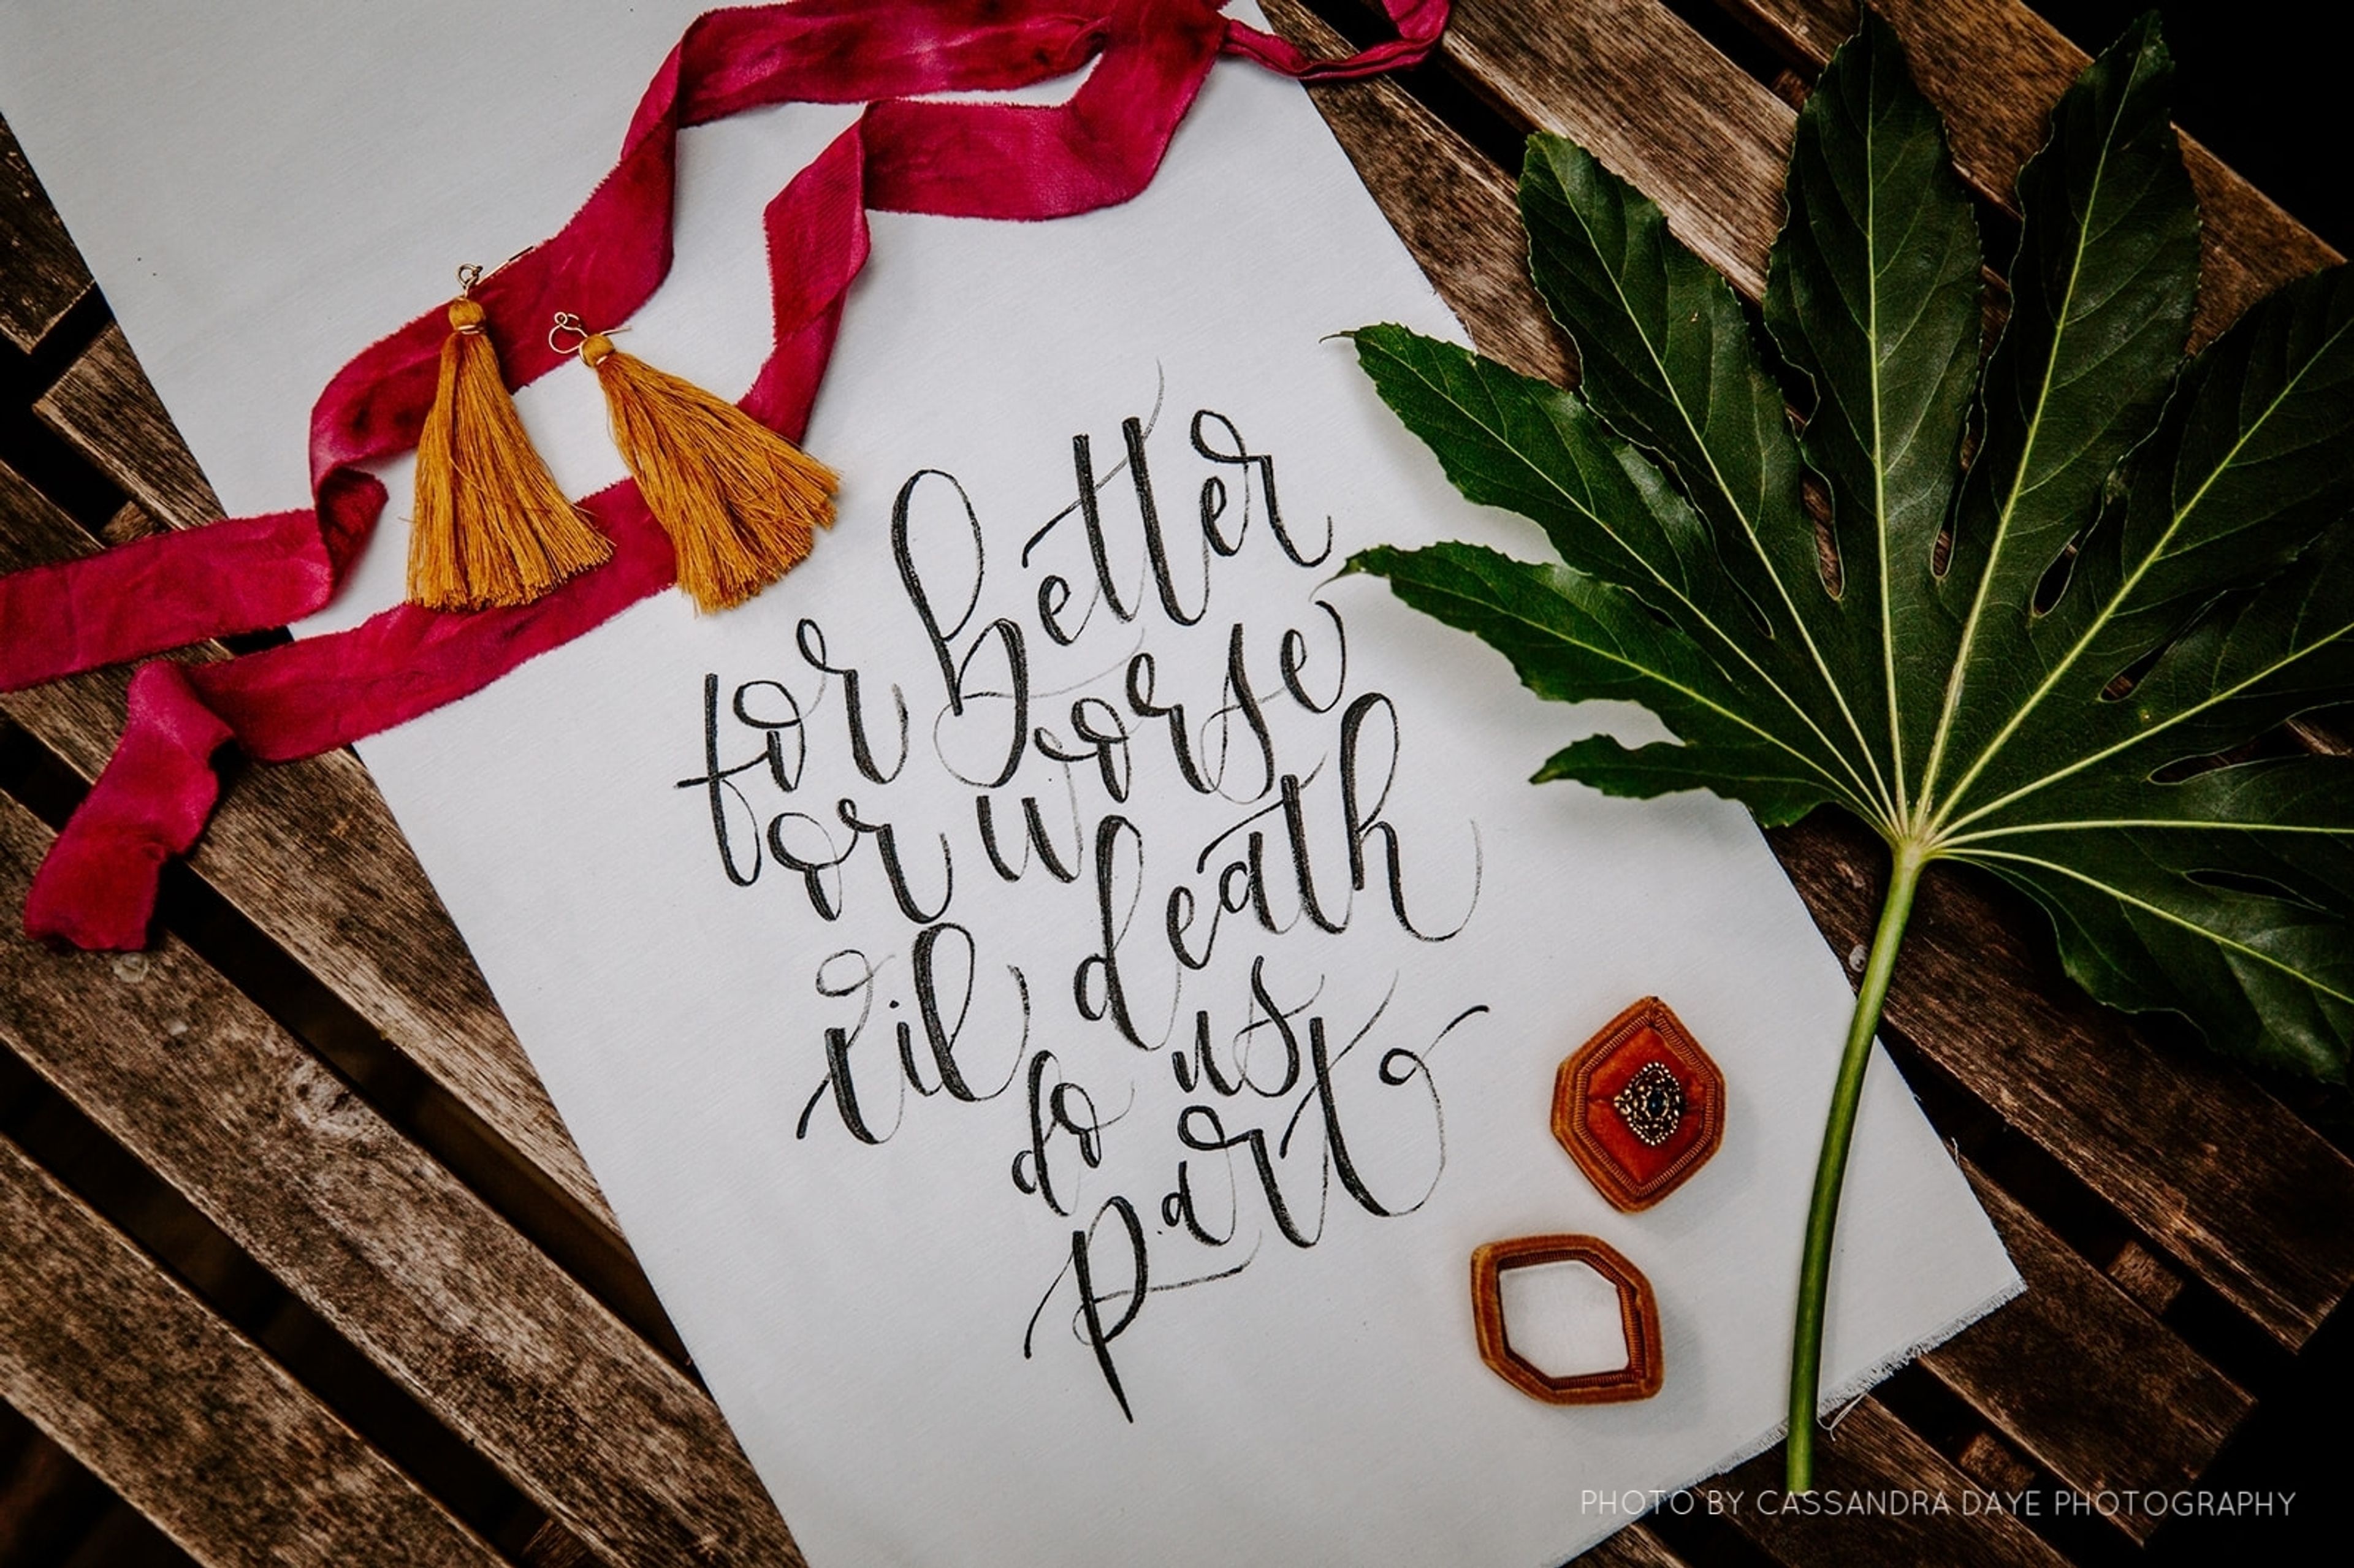 for better
for worse
til death
do us
part
PHOTO BY CASSANDRA DAYE PHOTOGRAPHY